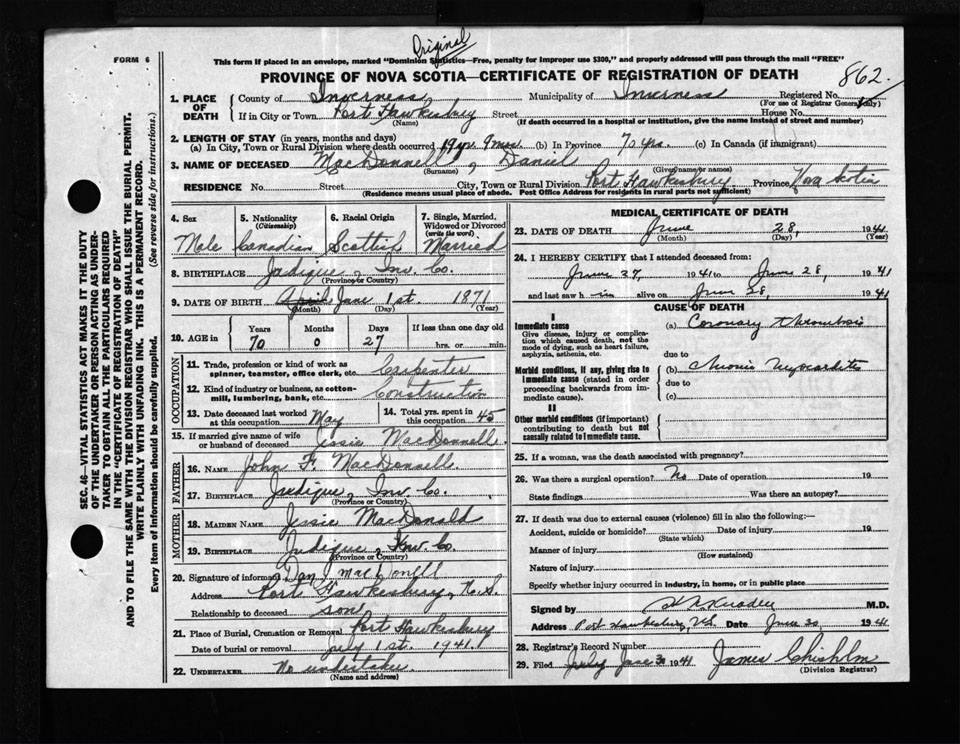 Original
FORM 6
This form if placed in an envelope, marked "Dominion Statistics—Free, penalty for Improper use $300," and properly addressed will pass through the mail "FREE"
PROVINCE OF NOVA SCOTIA—CERTIFICATE OF REGISTRATION OF DEATH
862.
SEC. 46—VITAL STATISTICS ACT MAKES IT THE DUTY
OF THE UNDERTAKER OR PERSON ACTING AS UNDER-
TAKER TO OBTAIN ALL THE PARTICULARS REQUIRED
IN THE "CERTIFICATE OF REGISTRATION OF DEATH"
AND TO FILE THE SAME WITH THE DIVISION REGISTRAR WHO SHALL ISSUE THE BURIAL PERMIT.
WRITE PLAINLY WITH UNFADING INK. THIS IS A PERMANENT RECORD.
Every item of Information should be carefully supplied. (See reverse side for instructions.)
1. PLACE OF DEATH { County of Inverness Municipality of Inverness Registered No.
(For use of Registrar General only)
If in City or Town Port Hawkesbury Street House No.
(Name) (If death occurred in a hospital or institution, give the name instead of street and number)
2. LENGTH OF STAY (in years, months and days)
(a) In City, Town or Rural Division where death occurred 19 yr. 9 mos. (b) In Province 70 yrs. (c) In Canada (if immigrant)
3. NAME OF DECEASED MacDonnell, Daniel
(Surname) (Given name or names)
RESIDENCE No. Street City, Town or Rural Division Port Hawkesbury Province Nova Scotia
(Residence means usual place of abode. Post Office Address for residents in rural parts not sufficient)
4. Sex 5. Nationality (Citizenship) 6. Racial Origin 7. Single, Married, Widowed or Divorced (write the word)
Male Canadian Scottish Married
8. BIRTHPLACE Judique, Inv. Co.
(Province or Country)
9. DATE OF BIRTH April June 1st. 1871
(Month) (Day) (Year)
10. AGE in Years Months Days If less than one day old
70 0 27 hrs. or min.
OCCUPATION
11. Trade, profession or kind of work as spinner, teamster, office clerk, etc. Carpenter
12. Kind of industry or business, as cotton-mill, lumbering, bank, etc. Construction
13. Date deceased last worked at this occupation May 14. Total yrs. spent in this occupation 45
15. If married give name of wife or husband of deceased Jessie MacDonnell
FATHER
16. NAME John F. MacDonnell
17. BIRTHPLACE Judique, Inv. Co.
(Province or Country)
MOTHER
18. MAIDEN NAME Jessie MacDonald
19. BIRTHPLACE Judique, Inv. Co.
(Province or Country)
20. Signature of informant Dan MacDonell
Address Port Hawkesbury, N.S.
Relationship to deceased son
21. Place of Burial, Cremation or Removal Port Hawkesbury
Date of burial or removal July 1st. 1941.
22. UNDERTAKER No undertaker
(Name and address)
MEDICAL CERTIFICATE OF DEATH
23. DATE OF DEATH June 28, 1941
(Month) (Day) (Year)
24. I HEREBY CERTIFY that I attended deceased from:
June 27, 1941 to June 28, 1941
and last saw him alive on June 28, 1941
CAUSE OF DEATH
I
Immediate cause
Give disease, injury or complication which caused death, not the mode of dying, such as heart failure, asphyxia, asthenia, etc.
(a) Coronary thrombosis
due to
Morbid conditions, if any, giving rise to immediate cause (stated in order proceeding backwards from immediate cause).
(b) Chronic Myocarditis
due to
(c)
II
Other morbid conditions (if important) contributing to death but not causally related to immediate cause.
25. If a woman, was the death associated with pregnancy?
26. Was there a surgical operation? No Date of operation 19
State findings Was there an autopsy?
27. If death was due to external causes (violence) fill in also the following:—
Accident, suicide or homicide? Date of injury 19
(State which)
Manner of injury
(How sustained)
Nature of injury
Specify whether injury occurred in industry, in home, or in public place
Signed by M.D.
Address Port Hawkesbury, N.S. Date June 30 1941
28. Registrar's Record Number
29. Filed June 30 1941 James Chisholm
(Division Registrar)